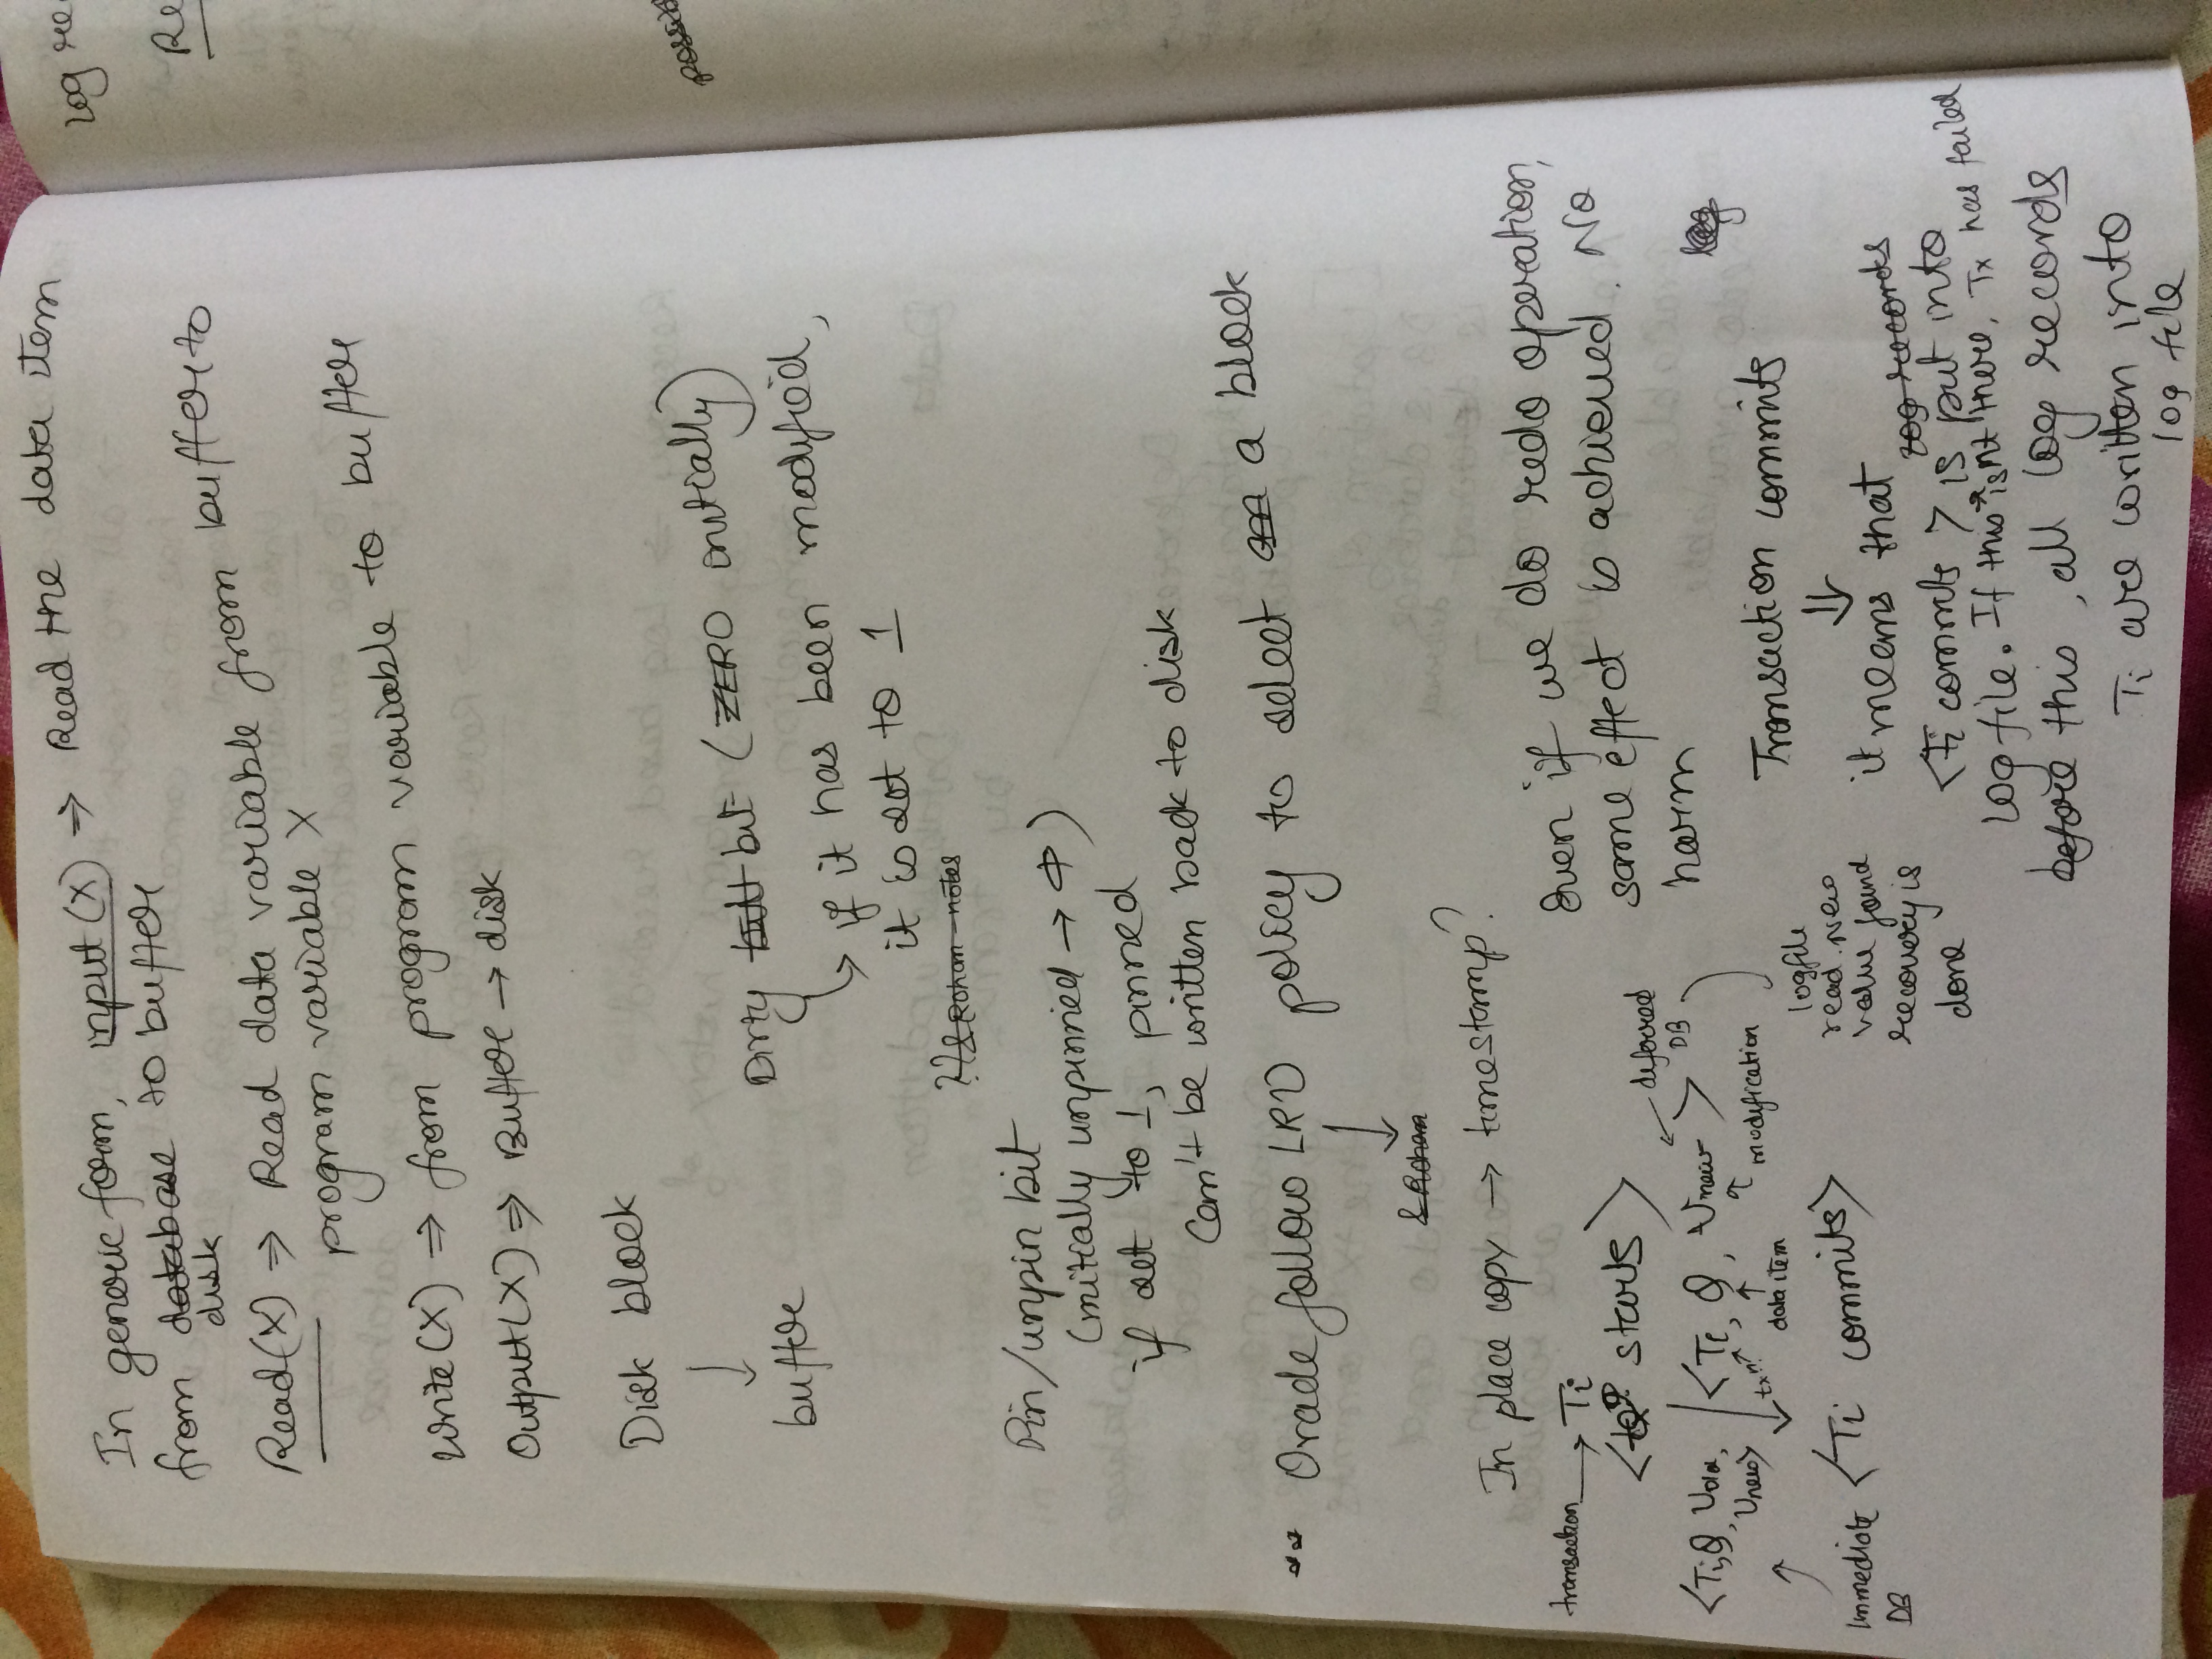 In generic form, input (X) ⇒ Read the data item
from database to buffer
disk
Read(X) ⇒ Read data variable from buffer to
program variable X
Write(X) ⇒ from program variable to buffer
Output(X) ⇒ Buffer → disk
Disk block
↓
buffer
Dirty bit (ZERO initially)
↳ if it has been modified,
it is set to 1
??& Roham notes
Pin/unpin bit
(initially unpinned → Φ)
if set to 1, pinned
Can't be written back to disk
** Oracle follow LRU policy to select a block
↓
& Roham
In place copy → timestamp?
transaction → Ti
< starts >
<Ti, Q, Vold,
Vnew>
Immediate
DB
<Ti, Q, Vnew>
deferred
DB
txn
data item
modification
<Ti commits>
logfile
read. New
value found
recovery is
done
Even if we do redo operation,
same effect is achieved. No
harm
Transaction commits
⇓
it means that
log records
<Ti commits > is put into
log file. If this isn't there, Tx has failed
before this, all log records
Ti are written into
log file
log re
Re
possib